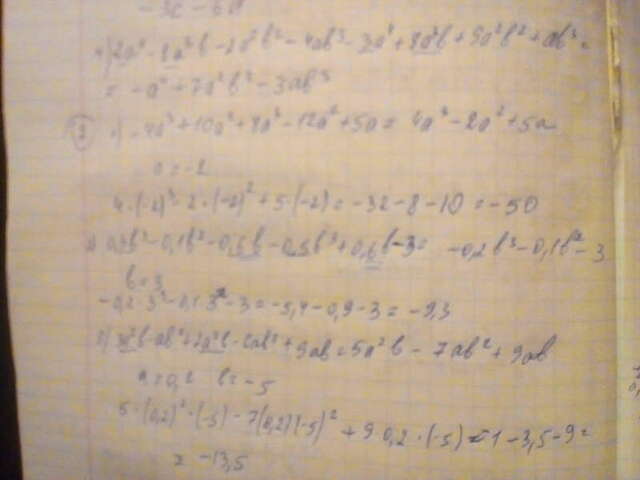 4) 2a⁴ - 8a³b - 2a²b² - 4ab³ - 3a⁴ + 8a³b + 9a²b² + ab³ =
= -a⁴ + 7a²b² - 3ab³
-4a³ + 10a² + 8a³ - 12a² + 5a = 4a³ - 2a² + 5a
a = -2
4·(-2)³ - 2·(-2)² + 5·(-2) = -32 - 8 - 10 = -50
0,3b³ - 0,1b² - 0,6b - 0,5b³ + 0,6b - 3 = -0,2b³ - 0,1b² - 3
b = 3
-0,2·3³ - 0,1·3² - 3 = -5,4 - 0,9 - 3 = -9,3
3a²b - ab² + 2a²b - 6ab² + 9ab = 5a²b - 7ab² + 9ab
a = 0,2 b = -5
5·(0,2)²·(-5) - 7(0,2)(-5)² + 9·0,2·(-5) = -1 - 3,5 - 9 =
= -13,5